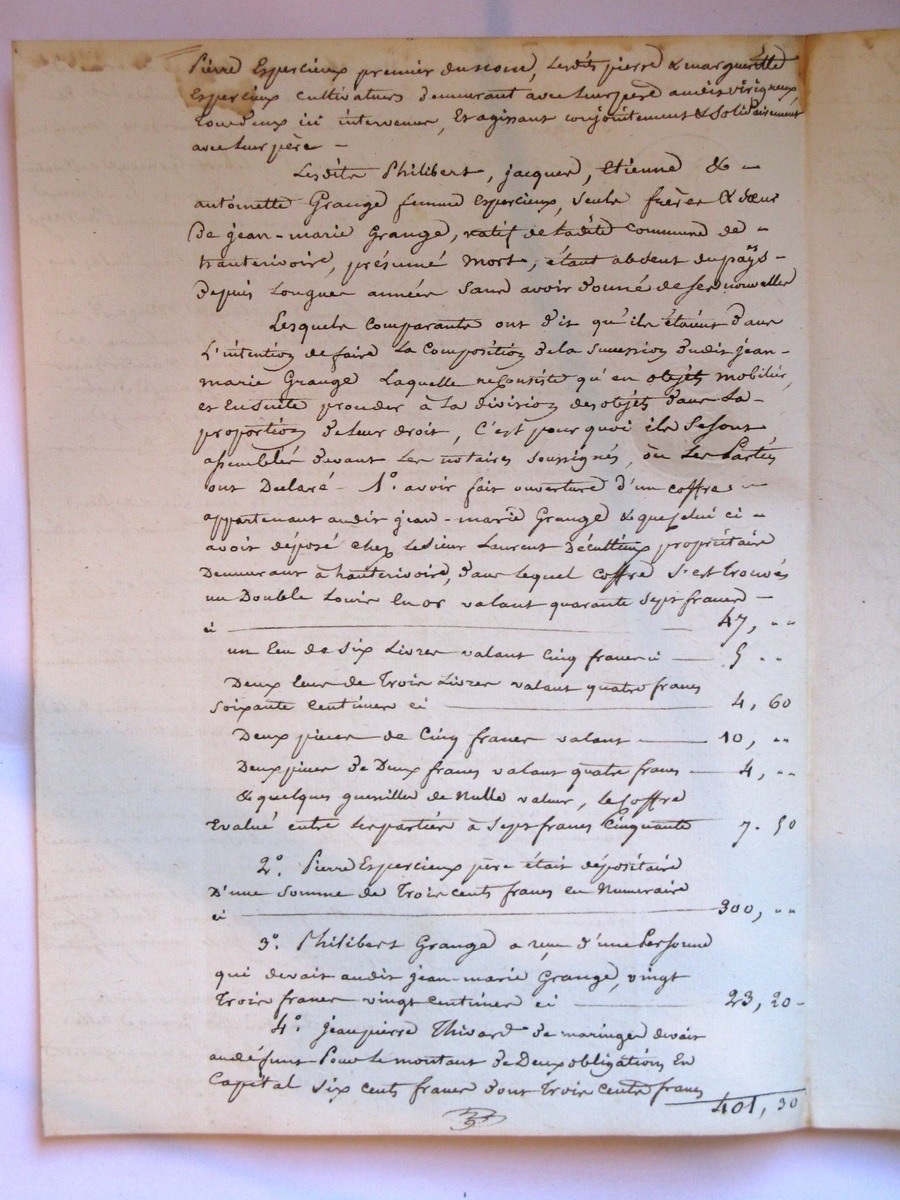 Pierre Espercieux premier du nom, Lesdits pierre & margueritte
Espercieux cultivateurs demeurant avec Leur père audit virigneux
tous deux ici intervenus, Et agissant conjointement & Solidairement
avec Leur père –
Lesdits Philibert, jacques, Etienne & –
antoinette Grange femme Espercieux, seuls frères & sœur
De jean-marie Grange, natif de ladite Commune de –
hauterivoire, présumé mort, étant absent du pays –
Depuis Longues années sans avoir donné de ses nouvelles
Lesquels Comparants ont dit qu'ils étaient dans
L'intention de faire La Composition de la Succession dudit jean-
marie Grange Laquelle ne Consiste qu'en objets mobiliers,
et Ensuite proceder à La division des objets dans La –
proportion de leur droit, C'est pourquoi ils Se sont
assemblés devant Les notaires soussignés, où Les Parties
ont Déclaré – 1°. avoir fait ouverture d'un coffre –
appartenant audit jean-marie Grange & que celui ci –
avoit déposé chez Le Sieur Laurent Décultieux propriétaire
Demeurant à hauterivoire, dans lequel coffre S'est trouvés
un Double Louis En or valant quarante Sept francs –
ci — 47, "
un Ecu de Six Livres valant Cinq francs ci — 5 "
Deux Ecus de Trois Livres valant quatre francs
Soixante Centimes ci — 4, 60
Deux pieces de Cinq francs valant — 10, "
Deux pieces de Deux francs valant quatre francs — 4, "
& quelques guenilles de Nulle valeur, Le Coffre
Evalué entre Les parties à Sept francs Cinquante 7. 50
2°. Pierre Espercieux père était dépositaire
D'une Somme de Trois Cents francs en Numeraire
ci — 300, "
3°. Philibert Grange a reçu d'une Personne
qui devait audit jean-marie Grange, vingt
Trois francs vingt Centimes ci — 23, 20 –
4°. jean pierre Thivard de maringes devait
au défunt Pour Le montant de Deux obligations En
Capital Six Cents francs dont Trois Cents francs
401, 30